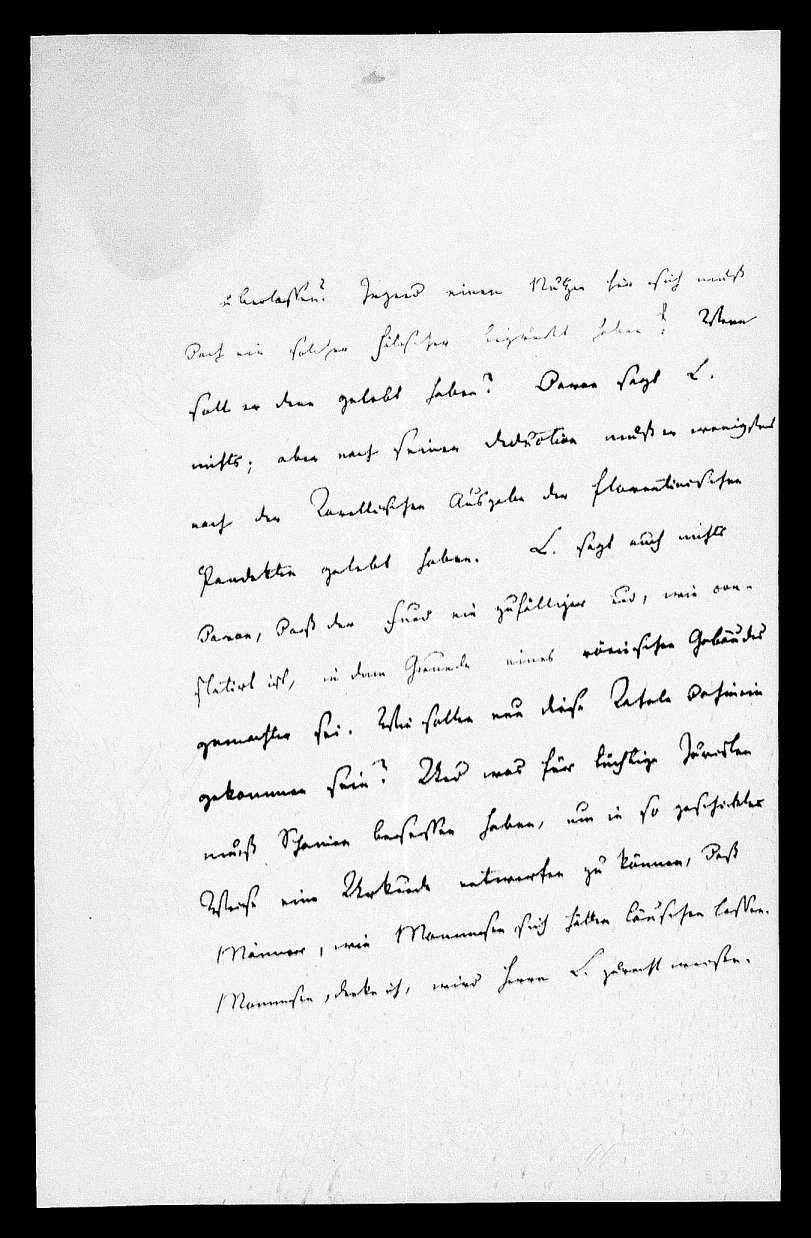 überlassen? Irgend einen Nutzen für sich muß
doch ein solcher Fälscher bezweckt haben? Wann
soll er denn gelebt haben? Davon sagt L.
nichts; aber nach seiner Deduction muß er wenigstens
nach der Torellischen Ausgabe der florentinischen
Pandekten gelebt haben. L. sagt auch nichts
davon, daß der Fund ein zufälliger und, wie con-
statirt ist, in dem Grunde eines römischen Gebäudes
gemachter sei. Wie sollen nun diese Tafeln dahinein
gekommen sein? Und was für tüchtige Juristen
muß Spanien besessen haben, um in so geschickter
Weise eine Urkunde entwerfen zu können, daß
Männer, wie Mommsen sich hätten täuschen lassen.
Mommsen, denke ich, wird Herrn L. zurecht weisen.